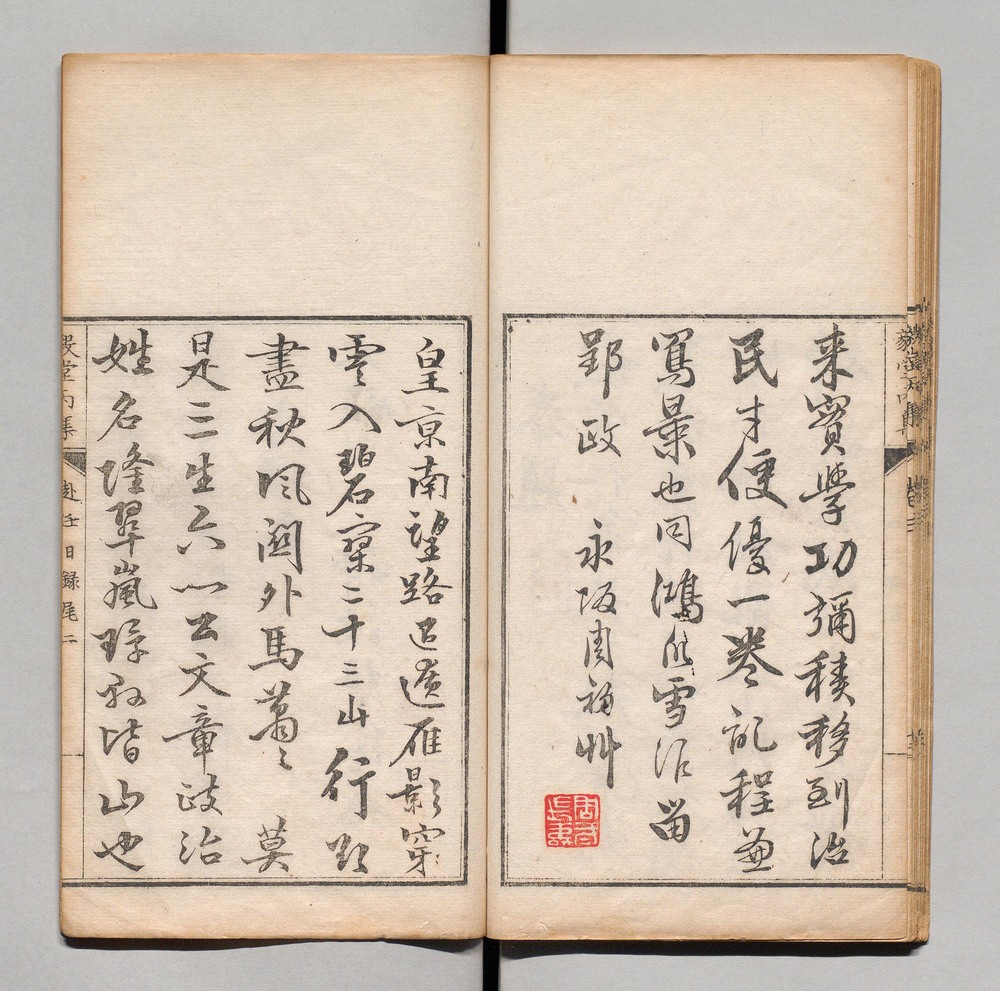 毅堂丙集
来實學功彌積移到治
民才便優一卷記程兼
寫景也同鴻爪雪泥留
郢政 永阪周福艸
皇京南望路迢遥雁影穿
雲入碧寥二十三山行欲
盡秋風關外馬蕭〻 莫
是三生六一公文章政治
姓名隆翠嵐環皆山也
毅堂丙集 赴任日録尾二